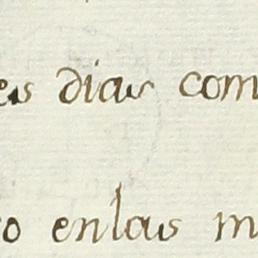 es dias com
o enlas m